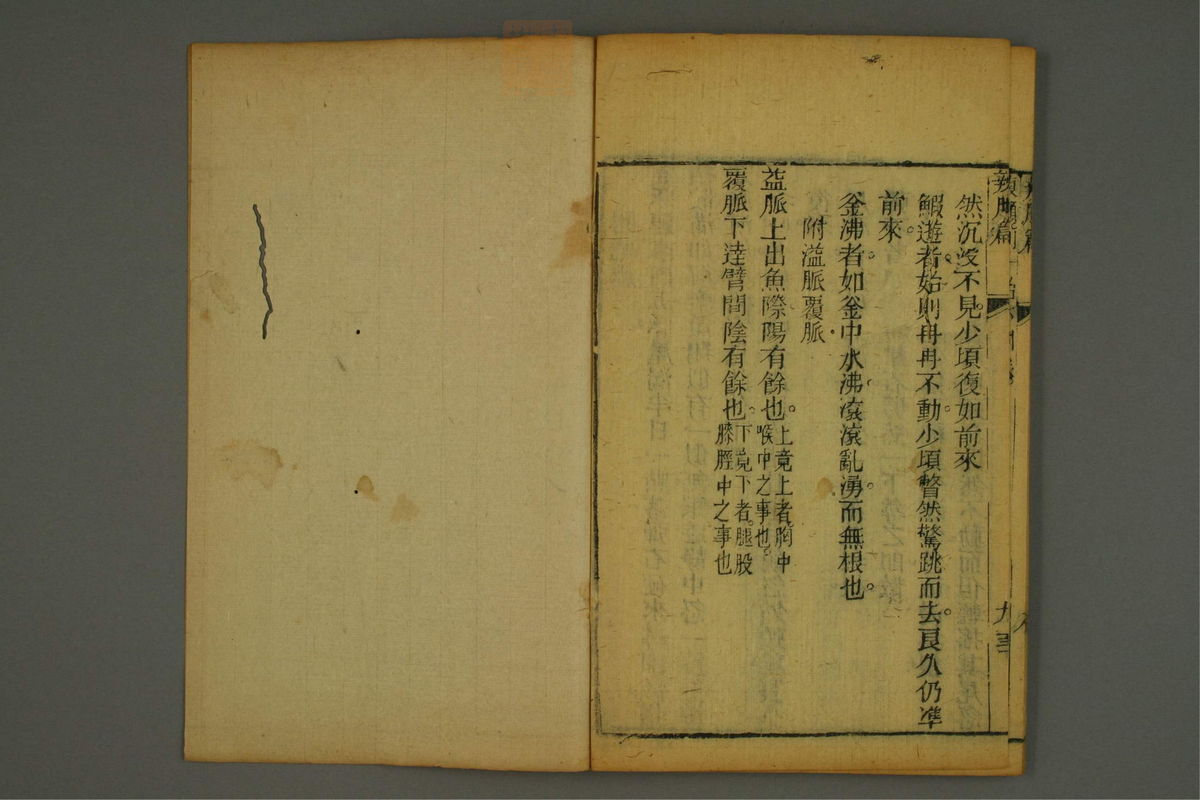 然沉没不見少頃復如前來
鰕遊者始則冉冉不動少頃瞥然驚跳而去良久仍準
前來
釜沸者如釜中水沸滾滾亂湧而無根也
附溢脈覆脈
益脈上出魚際陽有餘也上竟上者胸中喉中之事也
覆脈下逹臂間陰有餘也下竟下者腿股膝脛中之事也